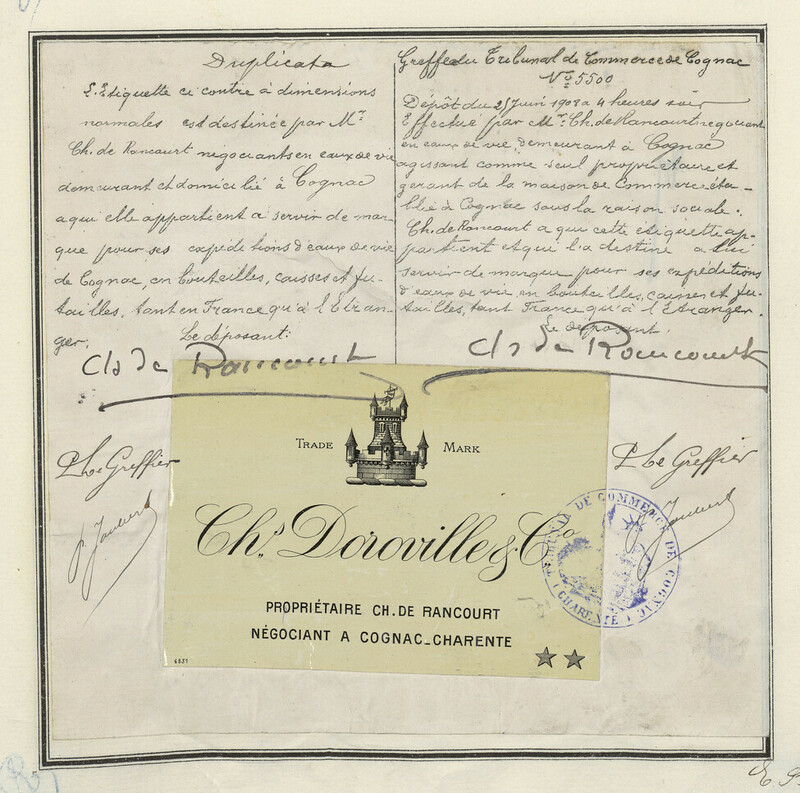 Duplicata
L'Etiquette ci contre à dimensions
normales est destinée par Mr
Ch. de Rancourt négociants en eaux de vie
demeurant et domicilié à Cognac
a qui elle appartient a servir de mar-
que pour ses expéditions d'eaux de vie
de Cognac, en bouteilles, caisses et fu-
tailles, tant en France qu'à l'Etran-
ger.
Le déposant:
Ch de Rancourt
P Le Greffier
Greffe du Tribunal de Commerce de Cognac
No 5500
Dépôt du 25 Juin 1908 a 4 heures soir
Effectué par Mr. Ch. de Rancourt negociant
en eaux de vie, demeurant à Cognac
agissant comme seul propriétaire et
gérant de la maison de Commerce éta-
blie à Cognac sous la raison sociale.
Ch. de Rancourt a qui cette étiquette ap-
partient et qui l'a destiné a lui
servir de marque pour ses expéditions
d'eaux de vie, en bouteilles, caisses et fu-
tailles, tant France qu'à l'Etranger.
Le déposant.
Ch de Rancourt
P Le Greffier
TRADE MARK
Chs. Doroville & Co
PROPRIÉTAIRE CH. DE RANCOURT
NÉGOCIANT A COGNAC_CHARENTE
4837
DE COMMERCE DE COGNAC
(CHARENTE)